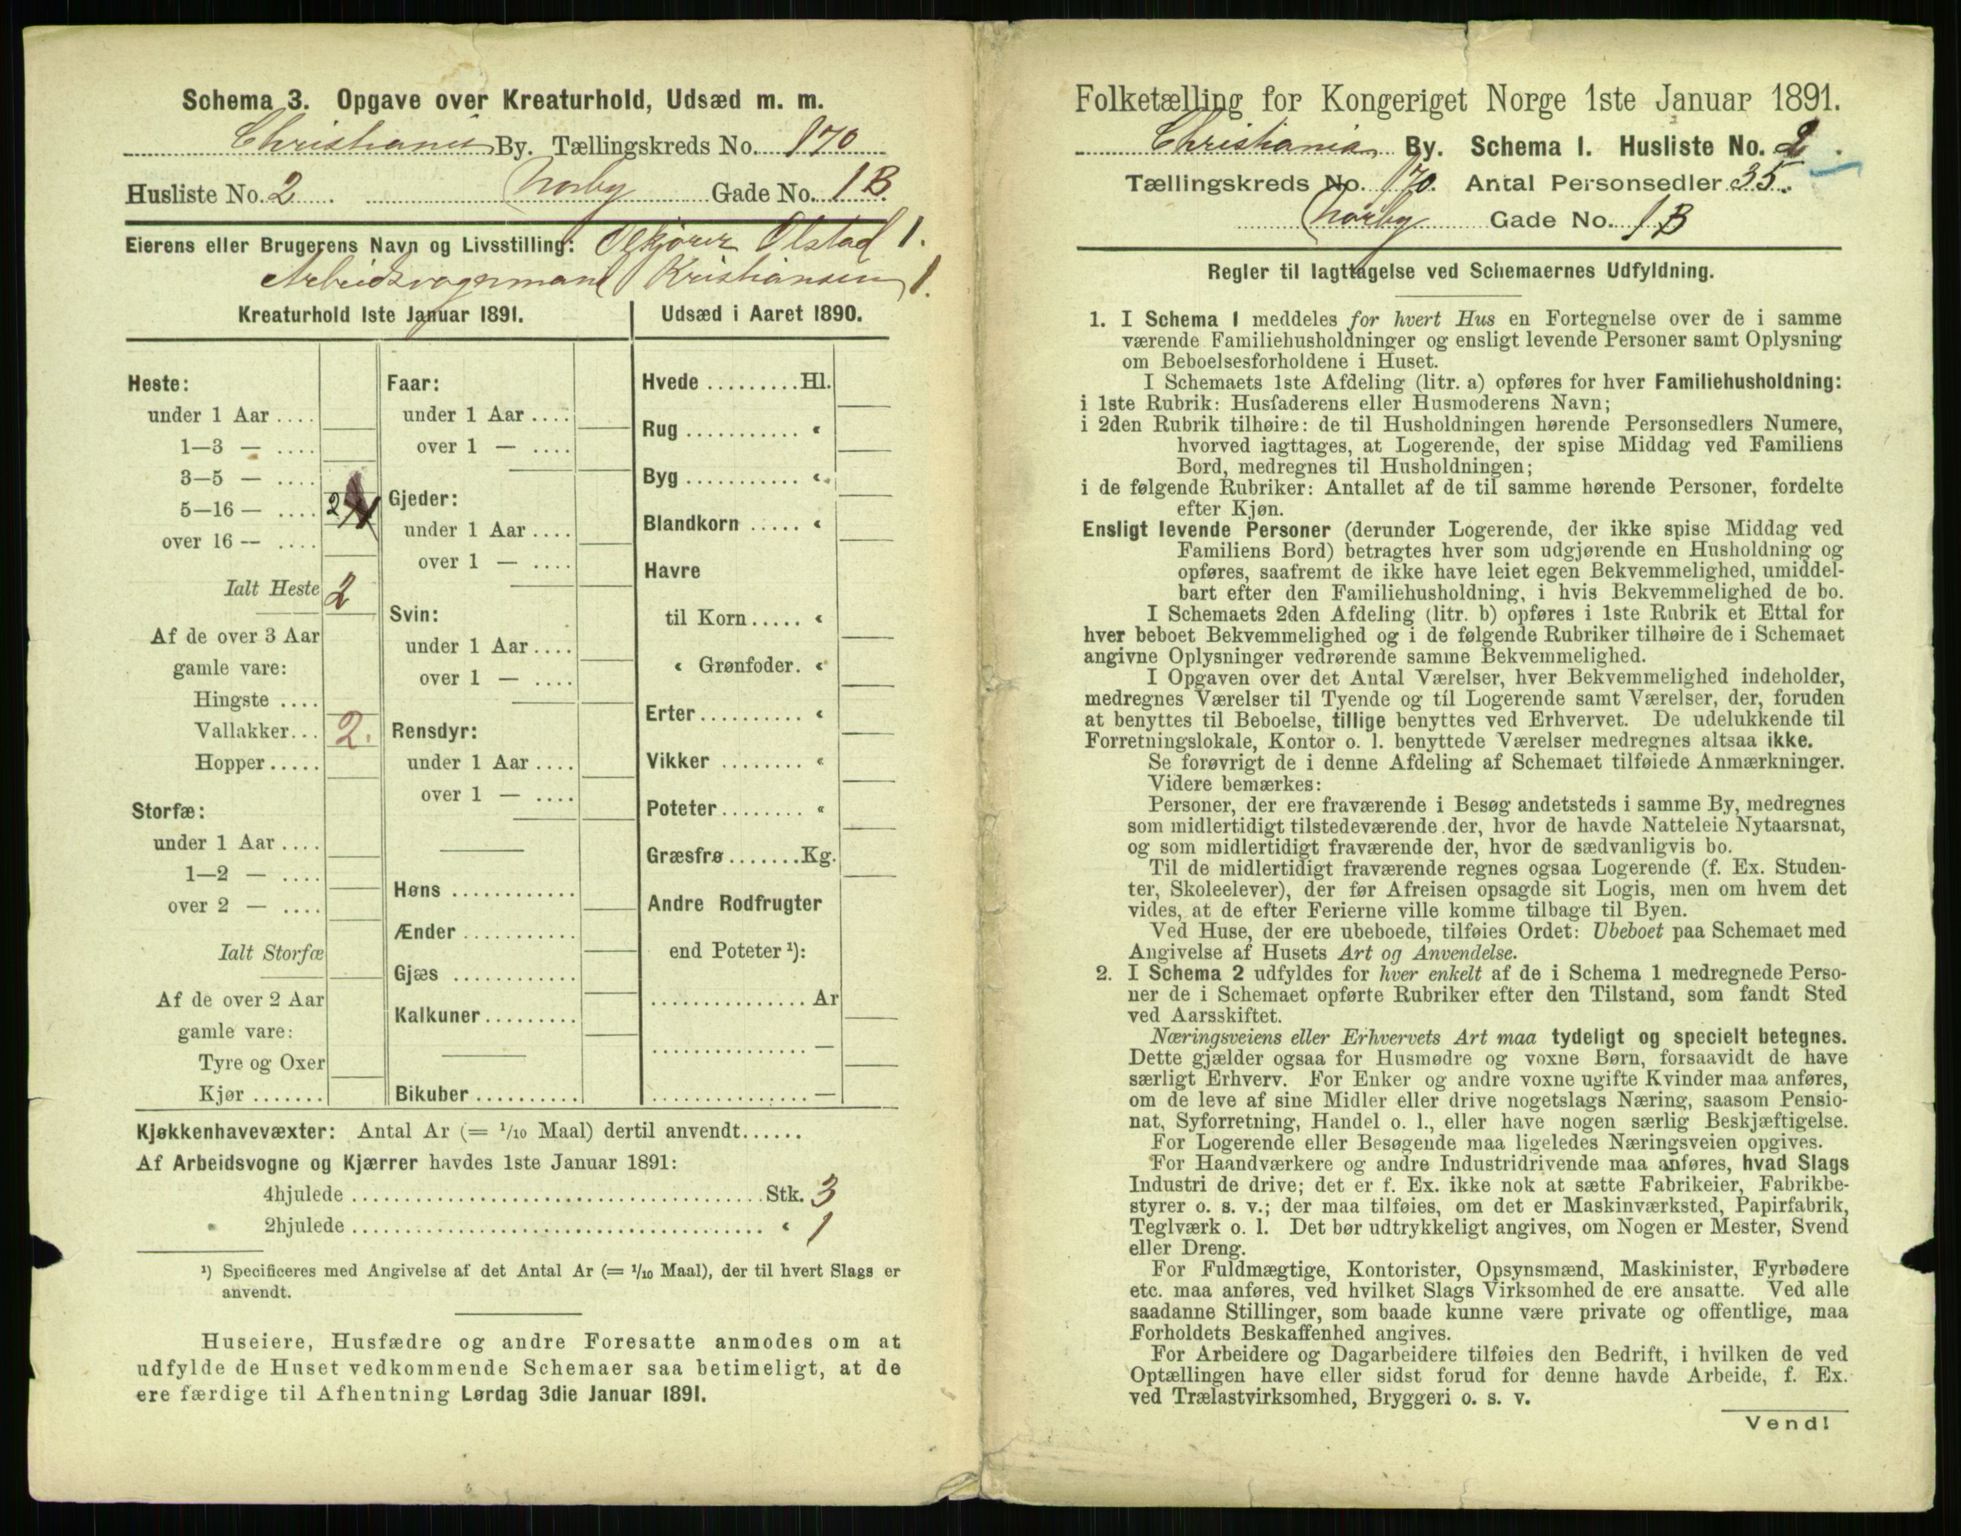 Schema 3. Opgave over Kreaturhold, Udsæd m. m.
Christiania By. Tællingskreds No. 170
Husliste No. 2. Norby Gade No. 1B.
Eierens eller Brugerens Navn og Livsstilling: Olstad 1.
Arbeidsvognmand Kristiansen 1.
Kreaturhold 1ste Januar 1891.
Heste:
under 1 Aar ....
1—3 — ....
3—5 — ....
5—16 — .... 2
over 16 — ....
Ialt Heste 2
Af de over 3 Aar
gamle vare:
Hingste ....
Vallakker... 2.
Hopper.....
Storfæ:
under 1 Aar ....
1—2 — ....
over 2 — ....
Ialt Storfæ
Af de over 2 Aar
gamle vare:
Tyre og Oxer
Kjør .......
Faar:
under 1 Aar ....
over 1 — ....
Gjeder:
under 1 Aar ....
over 1 — ....
Svin:
under 1 Aar ....
over 1 — ....
Rensdyr:
under 1 Aar ....
over 1 — ....
Høns ............
Ænder ...........
Gjæs ............
Kalkuner.........
Bikuber ..........
Udsæd i Aaret 1890.
Hvede .........Hl.
Rug ........... «
Byg ........... «
Blandkorn ..... «
Havre
til Korn ..... «
« Grønfoder. «
Erter.......... «
Vikker ........ «
Poteter........ «
Græsfrø .......Kg.
Andre Rodfrugter
end Poteter ¹):
............... Ar
............... —
............... —
Kjøkkenhavevæxter: Antal Ar (= 1/10 Maal) dertil anvendt......
Af Arbeidsvogne og Kjærrer havdes 1ste Januar 1891:
4hjulede ........................................ Stk. 3
2hjulede ........................................ « 1
¹) Specificeres med Angivelse af det Antal Ar (= 1/10 Maal), der til hvert Slags er
anvendt.
Huseiere, Husfædre og andre Foresatte anmodes om at
udfylde de Huset vedkommende Schemaer saa betimeligt, at de
ere færdige til Afhentning Lørdag 3die Januar 1891.
Folketælling for Kongeriget Norge 1ste Januar 1891.
Christiania By. Schema 1. Husliste No. 2.
Tællingskreds No. 170. Antal Personsedler 35.
Norby Gade No. 1B
Regler til Iagttagelse ved Schemaernes Udfyldning.
1. I Schema 1 meddeles for hvert Hus en Fortegnelse over de i samme
værende Familiehusholdninger og ensligt levende Personer samt Oplysning
om Beboelsesforholdene i Huset.
I Schemaets 1ste Afdeling (litr. a) opføres for hver Familiehusholdning:
i 1ste Rubrik: Husfaderens eller Husmoderens Navn;
i 2den Rubrik tilhøire: de til Husholdningen hørende Personsedlers Numere,
hvorved iagttages, at Logerende, der spise Middag ved Familiens
Bord, medregnes til Husholdningen;
i de følgende Rubriker: Antallet af de til samme hørende Personer, fordelte
efter Kjøn.
Ensligt levende Personer (derunder Logerende, der ikke spise Middag ved
Familiens Bord) betragtes hver som udgjørende en Husholdning og
opføres, saafremt de ikke have leiet egen Bekvemmelighed, umiddel-
bart efter den Familiehusholdning, i hvis Bekvemmelighed de bo.
I Schemaets 2den Afdeling (litr. b) opføres i 1ste Rubrik et Ettal for
hver beboet Bekvemmelighed og i de følgende Rubriker tilhøire de i Schemaet
angivne Oplysninger vedrørende samme Bekvemmelighed.
I Opgaven over det Antal Værelser, hver Bekvemmelighed indeholder,
medregnes Værelser til Tyende og til Logerende samt Værelser, der, foruden
at benyttes til Beboelse, tillige benyttes ved Erhvervet. De udelukkende til
Forretningslokale, Kontor o. l. benyttede Værelser medregnes altsaa ikke.
Se forøvrigt de i denne Afdeling af Schemaet tilføiede Anmærkninger.
Videre bemærkes:
Personer, der ere fraværende i Besøg andetsteds i samme By, medregnes
som midlertidigt tilstedeværende der, hvor de havde Natteleie Nytaarsnat,
og som midlertidigt fraværende der, hvor de sædvanligvis bo.
Til de midlertidigt fraværende regnes ogsaa Logerende (f. Ex. Studen-
ter, Skoleelever), der før Afreisen opsagde sit Logis, men om hvem det
vides, at de efter Ferierne ville komme tilbage til Byen.
Ved Huse, der ere ubeboede, tilføies Ordet: Ubeboet paa Schemaet med
Angivelse af Husets Art og Anvendelse.
2. I Schema 2 udfyldes for hver enkelt af de i Schema 1 medregnede Perso-
ner de i Schemaet opførte Rubriker efter den Tilstand, som fandt Sted
ved Aarsskiftet.
Næringsveiens eller Erhvervets Art maa tydeligt og specielt betegnes.
Dette gjælder ogsaa for Husmødre og voxne Børn, forsaavidt de have
særligt Erhverv. For Enker og andre voxne ugifte Kvinder maa anføres,
om de leve af sine Midler eller drive nogetslags Næring, saasom Pensio-
nat, Syforretning, Handel o. l., eller have nogen særlig Beskjæftigelse.
For Logerende eller Besøgende maa ligeledes Næringsveien opgives.
For Haandværkere og andre Industridrivende maa anføres, hvad Slags
Industri de drive; det er f. Ex. ikke nok at sætte Fabrikeier, Fabrikbe-
styrer o. s. v.; der maa tilføies, om det er Maskinværksted, Papirfabrik,
Teglværk o. l. Det bør udtrykkeligt angives, om Nogen er Mester, Svend
eller Dreng.
For Fuldmægtige, Kontorister, Opsynsmænd, Maskinister, Fyrbødere
etc. maa anføres, ved hvilket Slags Virksomhed de ere ansatte. Ved alle
saadanne Stillinger, som baade kunne være private og offentlige, maa
Forholdets Beskaffenhed angives.
For Arbeidere og Dagarbeidere tilføies den Bedrift, i hvilken de ved
Optællingen have eller sidst forud for denne havde Arbeide, f. Ex.
ved Trælastvirksomhed, Bryggeri o. s. v.
Vend!